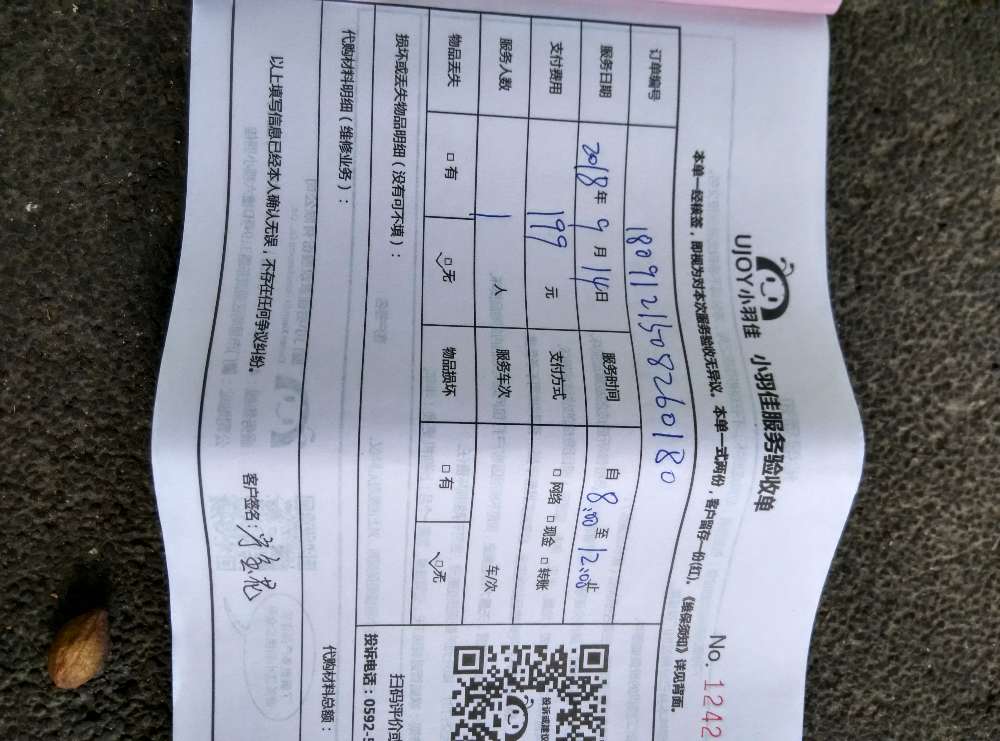 UJOY小羽佳 小羽佳服务验收单
No. 1242
本单一经核签，即视为对本次服务验收无异议。本单一式两份，客户留存一份(红)。《维保须知》详见背面。
订单编号 1809121508260180
服务日期 2018年 9 月 14日 服务时间 自 8:00 至 12:00止
支付费用 199 元 支付方式 □ 网络 □ 现金 □ 转账
服务人数 1 人 服务车次 车/次
物品丢失 □ 有 □ 无 物品损坏 □ 有 □ 无
损坏或丢失物品明细（没有可不填）：
代购材料明细（维修业务）：
代购材料总额：
以上填写信息已经本人确认无误，不存在任何争议纠纷。 客户签名：
投诉或建议
扫码评价或
投诉电话：0592-5